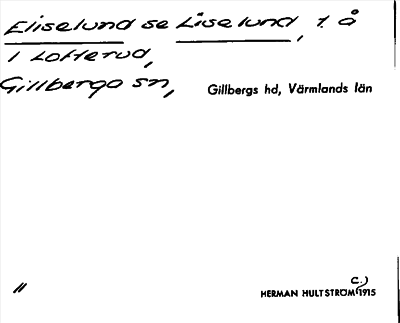 Eliselund se Liselund, t. å
1 Lofterud,
Gillberga sn, Gillbergs hd, Värmlands län
c.)
" HERMAN HULTSTRÖM 1915